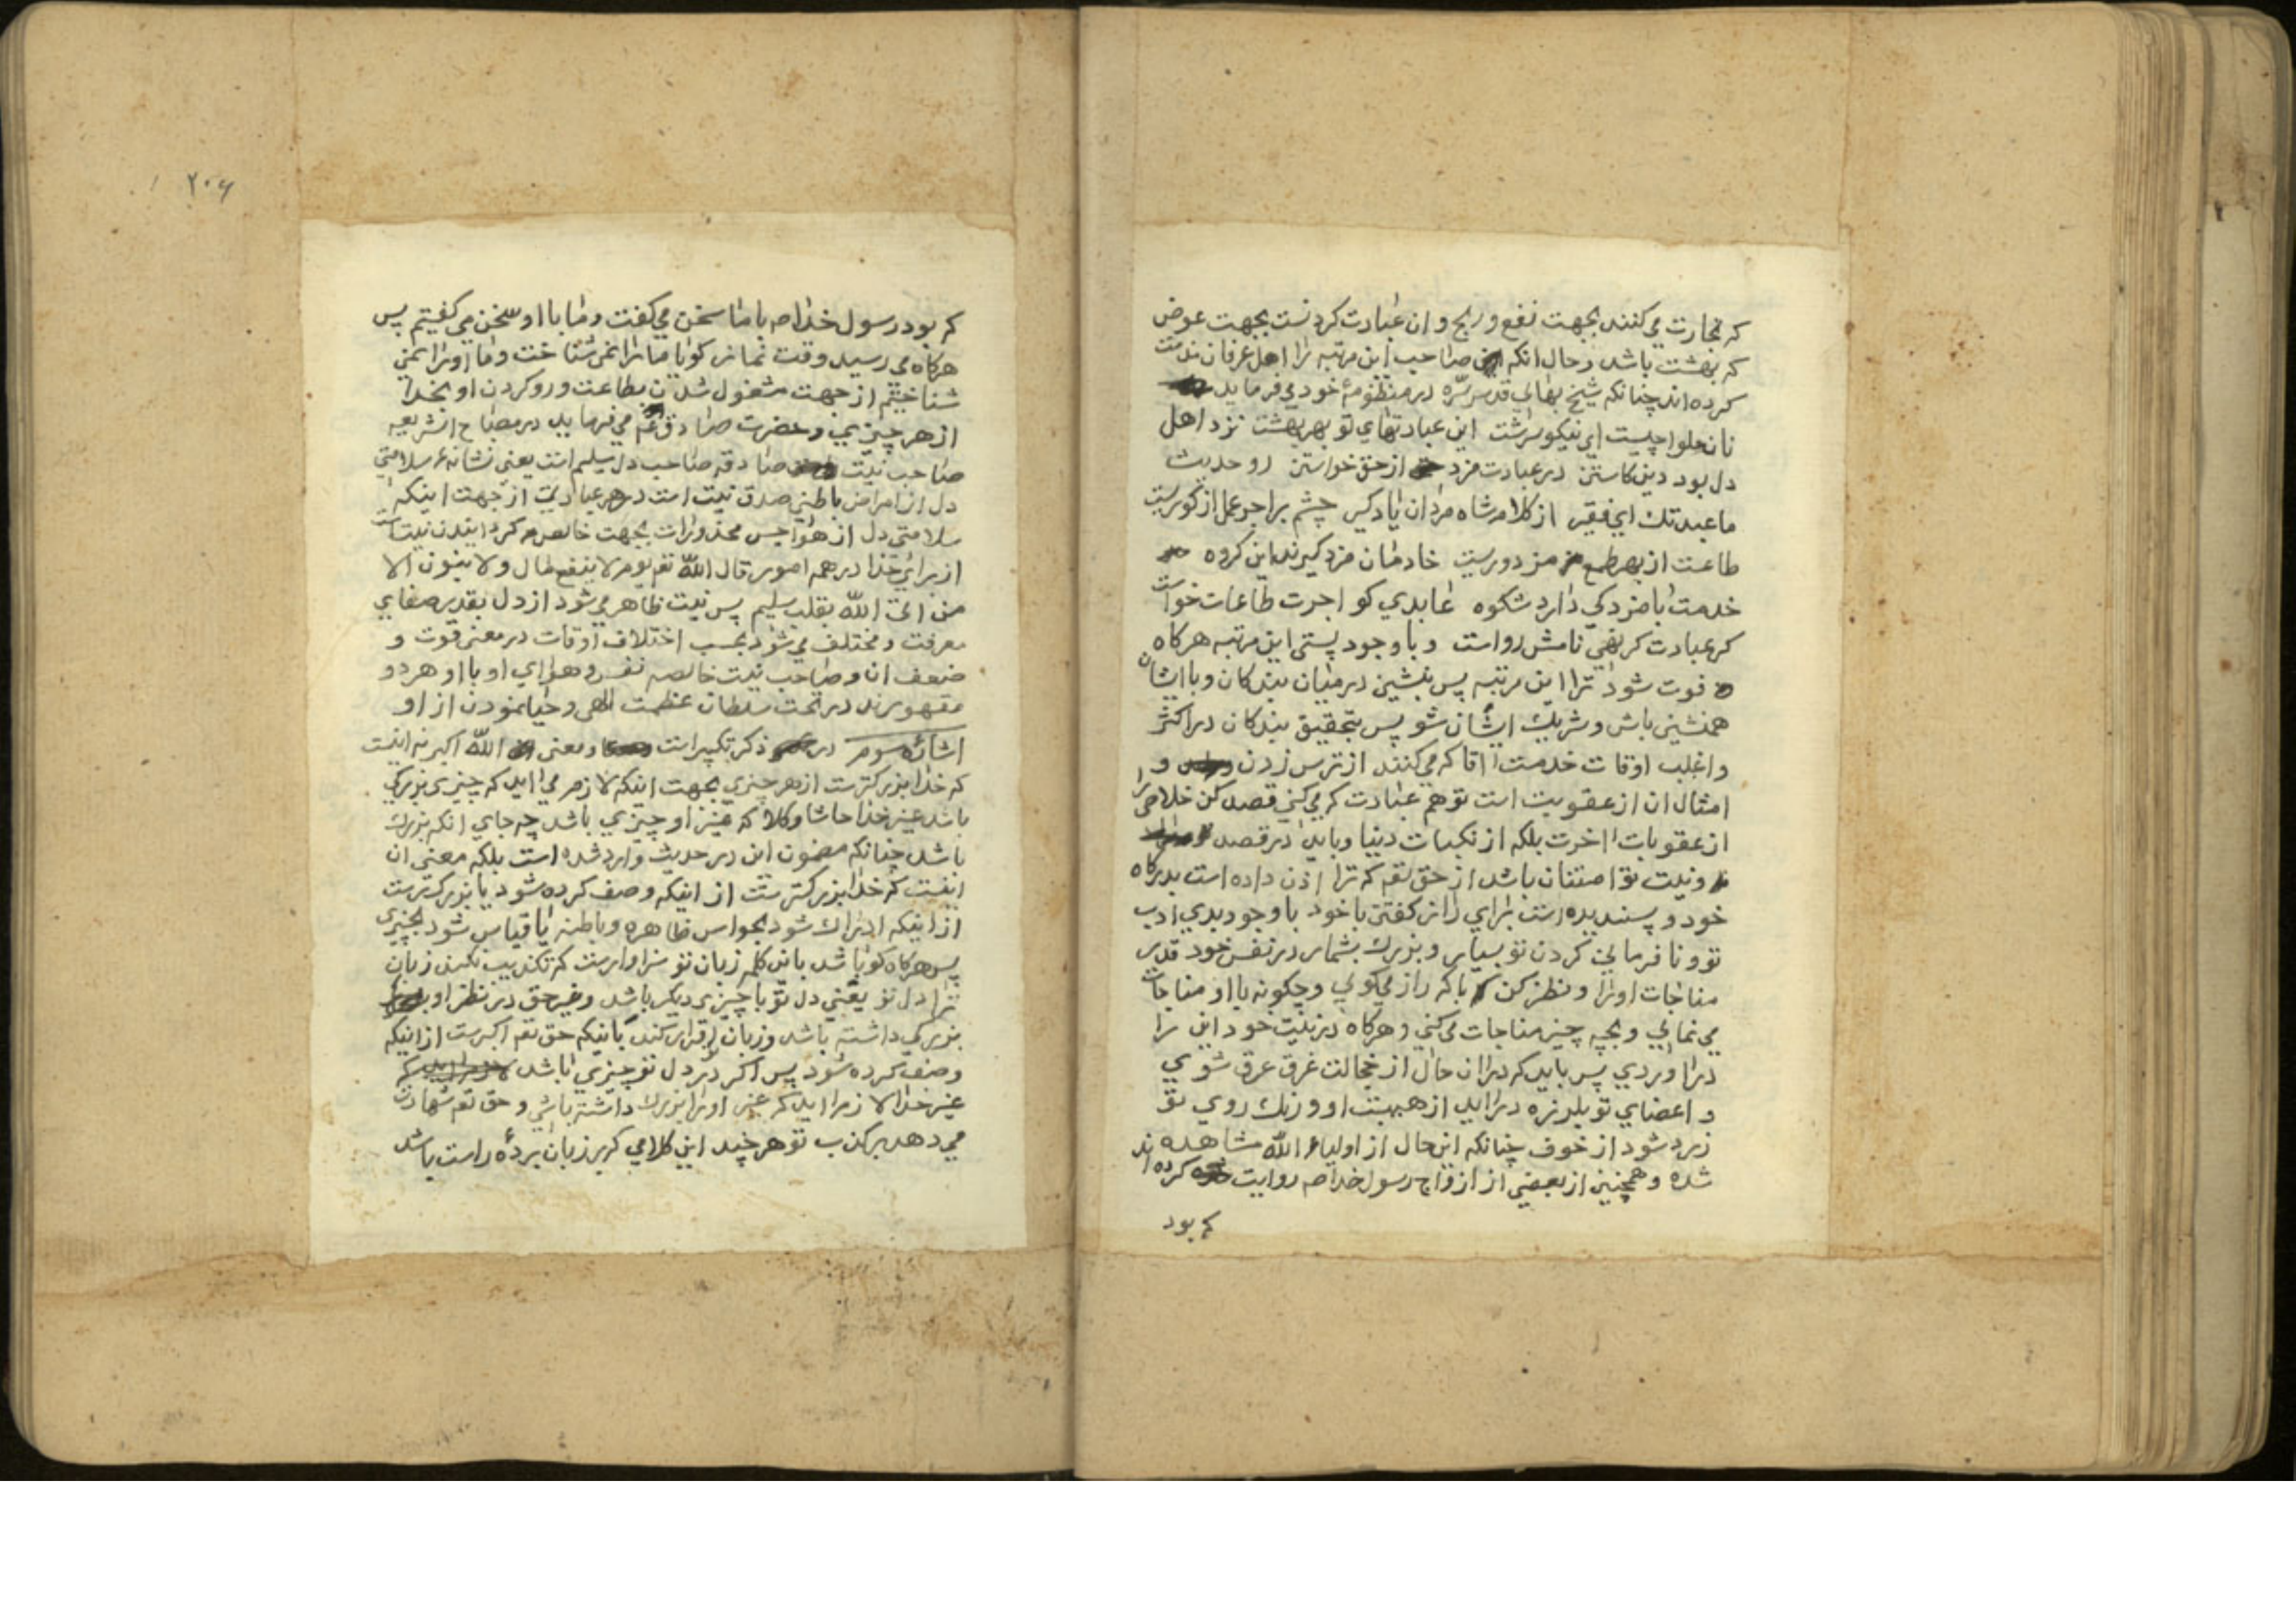 که تجارت می کنند بجهت نفع و ربح و ان عبادت کردنست بجهت عوض
که بهشت باشد و حال انکه صاحب این مرتبه را اهل عرفان مذمت
کرده اند چنانکه شیخ بهائی قدس سرّه در منظومهٔ خود می فرماید
نان حلوا چیست ای نیکو سرشت این عبادتهای تو بهر بهشت نزد اهل
دل بود دین کاستن در عبادت مزد از حق خواستن رو حدیث
ما عبدتک ای فقیر از کلام شاه مردان یاد کیر چشم بر اجر عمل از کوریست
طاعت از بهر طمع مزدوریست خادمان مزد کیرند این کروه
خدمت با مزد کی دارد شکوه عابدی کو اجرت طاعات خواست
کر عبادت کر نهی نامش رواست و با وجود پستی این مرتبه هرکاه
فوت شود ترا این مرتبه پس بنشین در میان بندکان و با ایشان
همنشین باش و شریک ایشان شو پس بتحقیق بندکان در اکثر
و اغلب اوقات خدمت اقا که می کنند از ترس زدن و
امثال ان از عقوبت است تو هم عبادت که می کنی قصد کن خلاصی را
از عقوبات اخرت بلکه از نکبات دنیا و باید در قصد
و نیت تو امتنان باشد از حق تعه که ترا اذن داده است بدرکاه
خود و پسندیده است برای راز کفتن با خود با وجود بدی ادب
تو و نافرمانی کردن تو بسیار و بزرک بشمار در نفس خود قدر
مناجات او را و نظر کن با که راز می کوئی و چکونه با او مناجات
می نمائی و بچه چیز مناجات می کنی و هرکاه در نیت خود این را
در اوردی پس باید که در ان حال از خجالت غرق عرق شوی
و اعضای تو بلرزه در اید از هیبت او و رنک روی تو
زرد شود از خوف چنانکه این حال از اولیاء الله مشاهده
شده و همچنین از بعضی از ازواج رسول خدا ص روایت کرده اند
که بود
۲۰۶
که بود رسول خدا ص با ما سخن می کفت و ما با او سخن می کفتیم پس
هرکاه می رسید وقت نماز کویا ما را نمی شناخت و ما او را نمی
شناختیم از جهت مشغول شدن بطاعت و رو کردن او بخدا
از هر چیزی و حضرت صادق ع می فرماید در مصباح الشریعه
صاحب نیت صادقه صاحب دل سلیم است یعنی نشانهٔ سلامتی
دل از امراض باطنی صدق نیت است در هر عبادتی از جهت اینکه
سلامتی دل از هواجس محذورات بجهت خالص کردانیدن نیت است
از برای خدا در همه امور قال الله تعه یوم لا ینفع مال و لا بنون الا
من اتی الله بقلب سلیم پس نیت ظاهر می شود از دل بقدر صفای
معرفت و مختلف می شود بحسب اختلاف اوقات در معنی قوت و
ضعف ان و صاحب نیت خالصه نفس و هوای او با او هر دو
مقهورند در تحت سلطان عظمت الهی و حیا نمودن از او
اشارهٔ سوم در ذکر تکبیر است و معنی الله اکبر نه اینست
که خدا بزرکترست از هر چیزی بجهت اینکه لازم می اید که چیزی بزرکی
باشد غیر خدا حاشا و کلا که غیر او چیزی باشد چه جای انکه بزرک
باشد چنانکه مضمون این در حدیث وارد شده است بلکه معنی ان
اینست که خدا بزرکترست از اینکه وصف کرده شود یا بزرکترست
از اینکه ادراک شود بحواس ظاهره و باطنه یا قیاس شود بچیزی
پس هرکاه کویا شد باین کلمه زبان تو سزاوارست که تکذیب نکند زبان
ترا دل تو یعنی دل تو با چیزی دیکر باشد و غیر حق در نظر او
بزرکی داشته باشد و زبان اقرار کند باینکه حق تعه اکبرست از اینکه
وصف کرده شود پس اکر در دل تو چیزی باشد
غیر خدا لازم اید که غیر او را بزرک داشته باشی و حق تعه شهادت
می دهد بر کذب تو هر چند این کلامی که بر زبان بردهٔ راست باشد